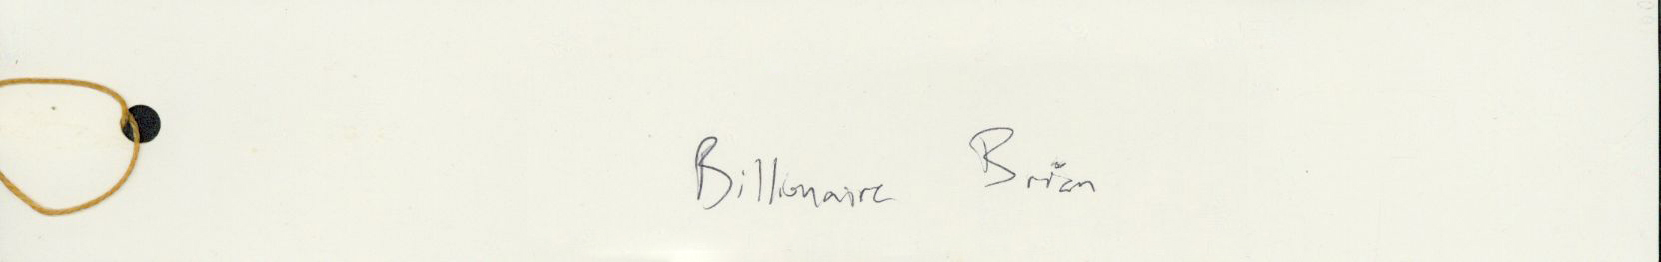 Billionaire Brian